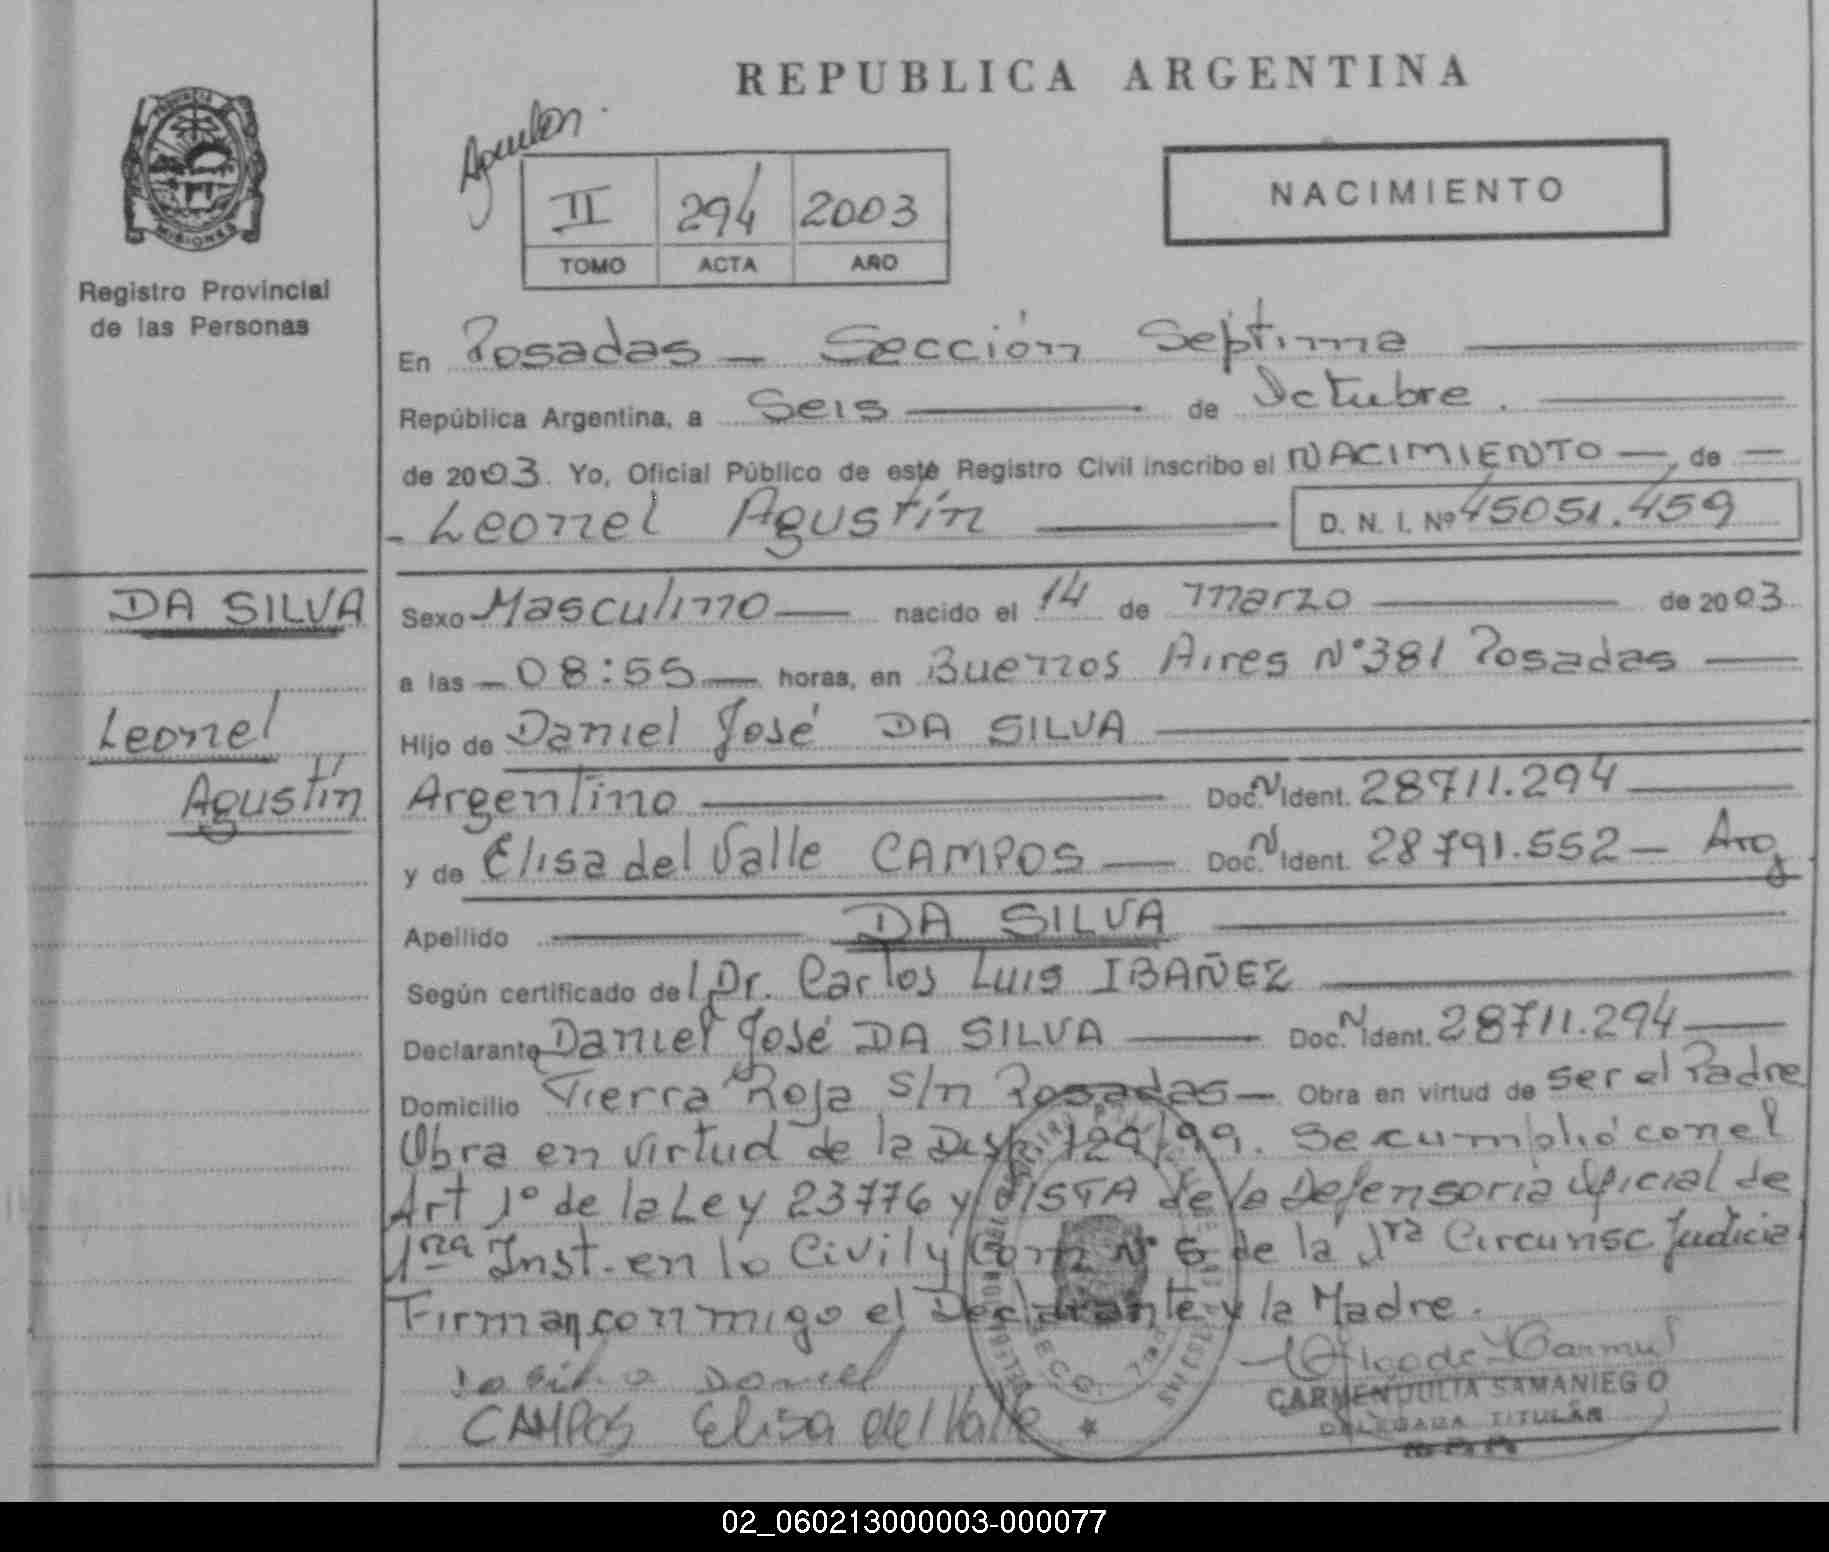 REPUBLICA ARGENTINA
PROVINCIA
MISIONES
Registro Provincial
de las Personas
II 294 2003
TOMO ACTA AÑO
NACIMIENTO
En Posadas - Sección Septima
República Argentina, a Seis de Octubre.
de 2003. Yo, Oficial Público de este Registro Civil inscribo el NACIMIENTO de
- Leonel Agustín D. N. I. Nº 45051.459
DA SILVA
Leonel
Agustín
Sexo Masculino nacido el 14 de marzo de 2003
a las 08:55 horas, en Buenos Aires N°381 Posadas
Hijo de Daniel José DA SILVA
Argentino Doc. N Ident. 28711.294
y de Elisa del Valle CAMPOS Doc. N Ident. 28791.552 - Arg
Apellido DA SILVA
Según certificado del Dr. Carlos Luis IBAÑEZ
Declarante Daniel José DA SILVA Doc. N Ident. 28711.294
Domicilio Tierra Roja S/n Posadas - Obra en virtud de ser el Padre
Obra en virtud de la Disp. 129/99. Se cumplió con el
Art 1° de la Ley 23776 y VISTA de la Defensoria Oficial de
1ra Inst. en lo Civil y Com N° 6 de la 1ra Circunsc Judicial
Firman conmigo el Declarante y la Madre.
Da Silva Daniel
CAMPOS Elisa del Valle
CARMEN JULIA SAMANIEGO
DELEGADA TITULAR
02_060213000003-000077